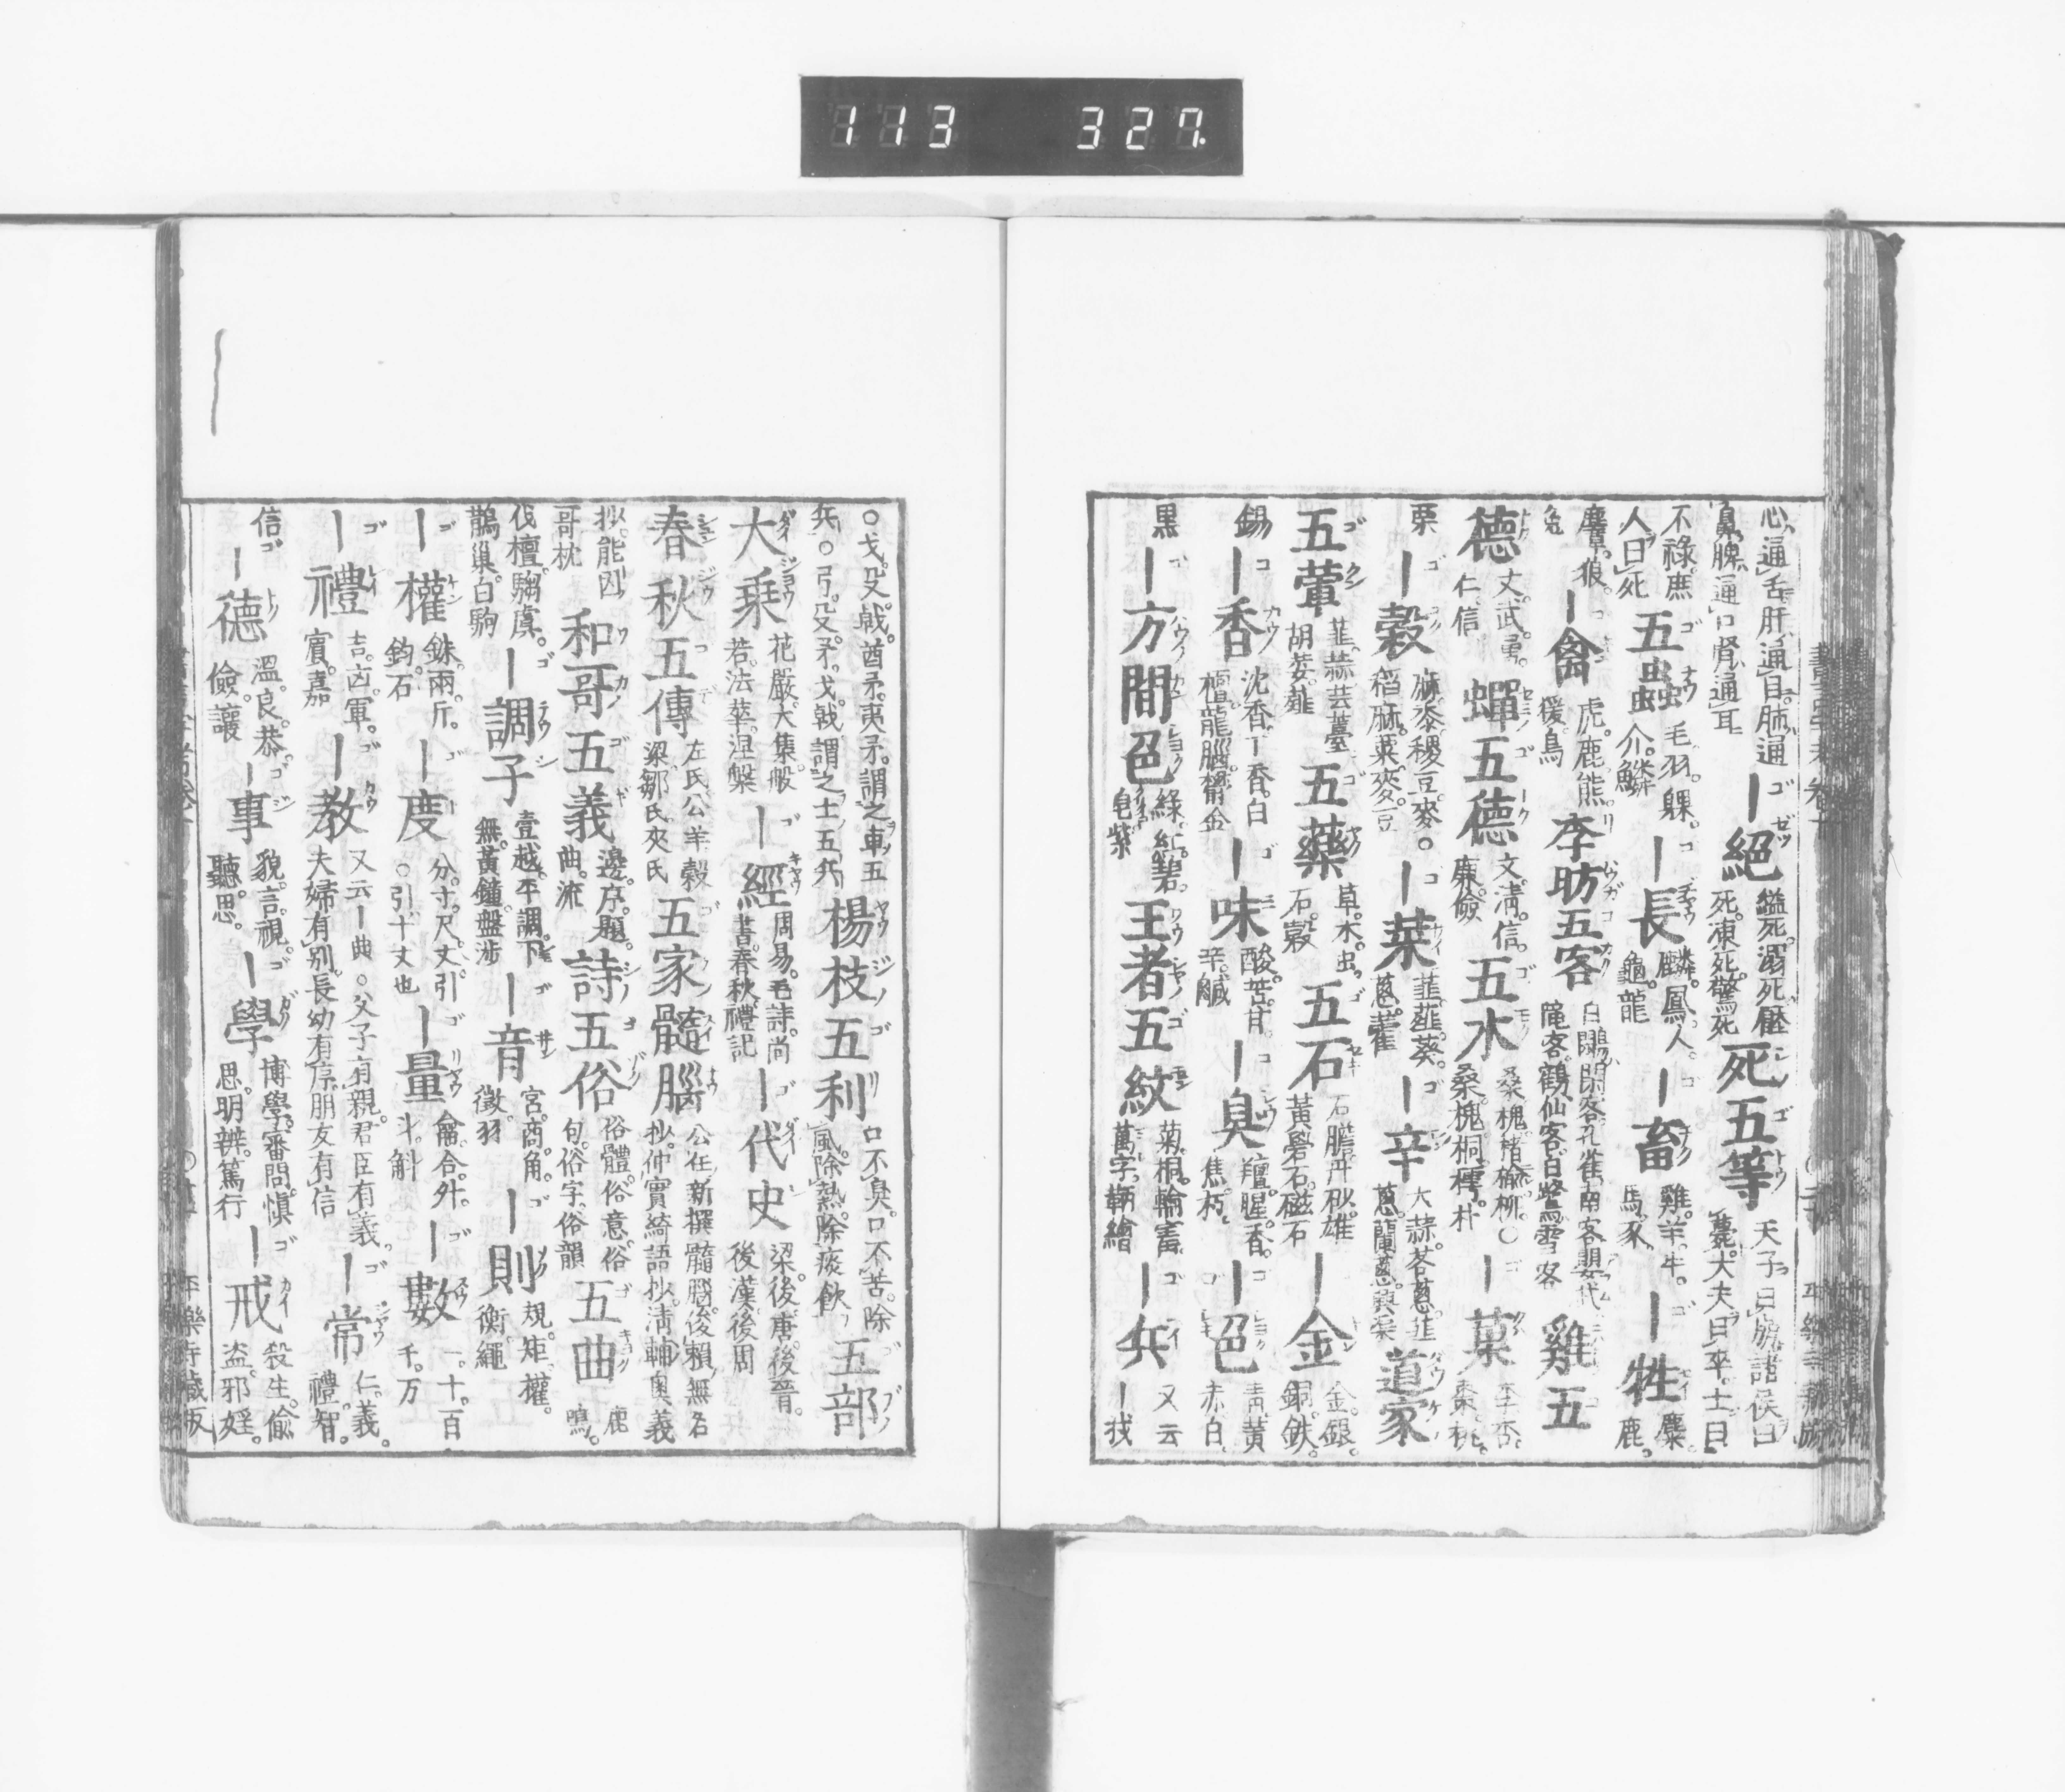 113 327.
心通舌肝通目肺通
鼻脾通口腎通耳
｜絕 縊死溺死壓
死凍死驚死
死五等 天子曰崩諸侯曰
薨大夫曰卒士曰
不祿庶
人曰死
五蟲 毛羽倮
介鱗
｜長 麟鳳人
龜龍
｜畜 雞羊牛
馬豕
｜牲 麋
鹿
麞狼
兔
｜禽 虎鹿熊
猨鳥
李昉五客 白鷴閑客孔雀南客鸚
隴客鶴仙客白鷺雪客
雞五
德 文武勇
仁信
蟬五德 文淸信
廉儉
五木 桑槐楮楡柳○
桑槐桐樗朴
｜菓 李杏
棗桃
栗
｜穀 麻黍稷豆麥○
稻麻粟麥豆
｜菜 韮薤葵
葱藿
｜辛 大蒜茖葱韮
葱蘭葱興渠
道家
五葷 韮蒜芸薹
胡荽薤
五藥 草木虫
石穀
五石 石膽丹砂雄
黃礜石磁石
｜金 金銀
銅鉄
錫
｜香 沈香丁香白
檀龍腦欝金
｜味 酸苦甘
辛鹹
｜臭 羶腥香
焦朽
｜色 靑黃
赤白
黒
｜方間色 綠紅碧
皂紫
王者五紋 菊桐輪寳
萬字鞆繪
｜兵 又云
｜戎
○戈殳戟酋矛夷矛謂之車五
兵○弓殳矛戈戟謂之士五兵
楊枝五利 口不臭口不苦除
風除熱除痰飮
五部
大乗 花嚴大集般
若法華涅槃
｜經 周易毛詩尚
書春秋禮記
｜代史 梁後唐後晉
後漢後周
春秋五傳 左氏公羊穀
梁鄒氏夾氏
五家髓腦 公任新撰髓腦俊賴無名
抄仲實綺語抄淸輔奧義
抄能因
哥枕
和哥五義 邊序題
曲流
詩五俗 俗體俗意俗
句俗字俗韻
五曲 鹿
鳴
伐檀騶虞
鵲巢白駒
｜調子 壹越平調下
無黃鐘盤渉
｜音 宮商角
徵羽
｜則 規矩權
衡繩
｜權 銖兩斤
鈞石
｜度 分寸尺丈引
○引十丈也
｜量 龠合升
斗斛
｜數 一十百
千万
｜禮 吉凶軍
賓嘉
｜敎 又云｜典○父子有親君臣有義
夫婦有別長幼有序朋友有信
｜常 仁義
禮智
信
｜德 溫良恭
儉讓
｜事 貌言視
聽思
｜學 博學審問愼
思明辨篤行
｜戒 殺生偸
盗邪婬